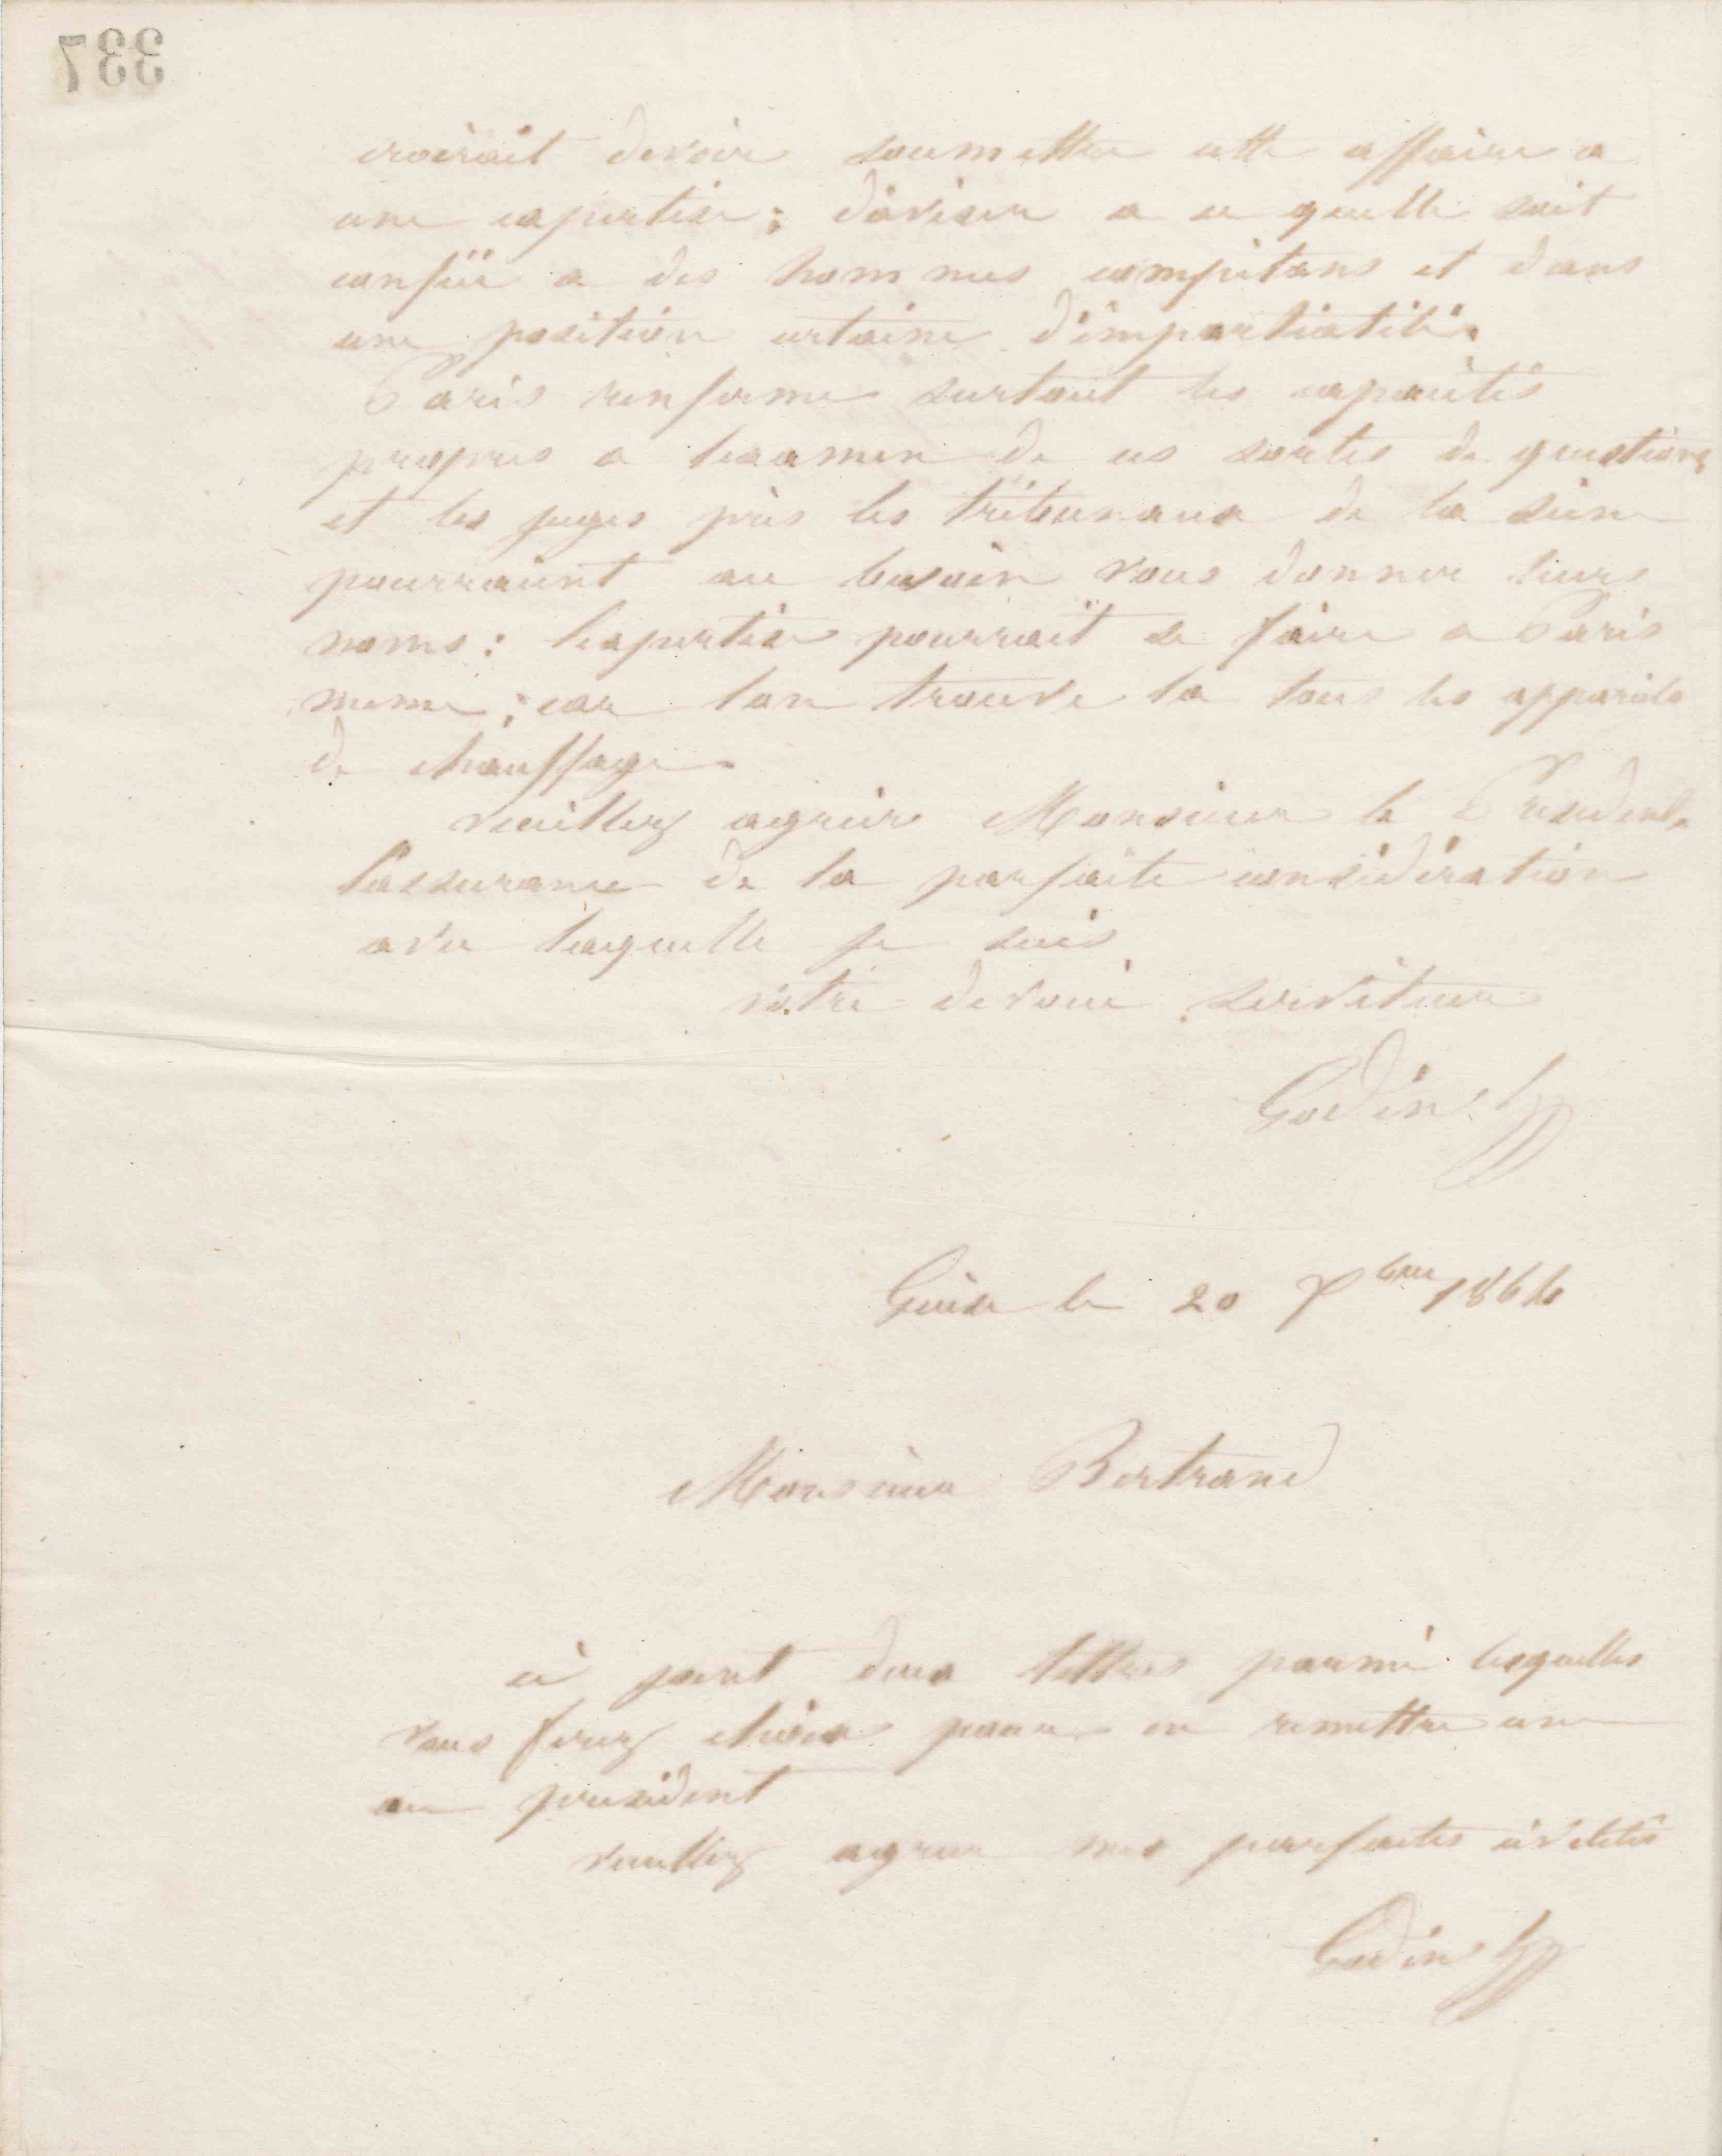 337
croirait devoir soumettre cette affaire a
une expertise ; daviser a ce quelle soit
confiée a des hommes compétans et dans
une position certaine d'impartialité.
Paris renferme surtout les capacités
propres a lexamen de ces sortes de questions
et les juges près les tribunaux de la seine
pourraient au besoin vous donner leurs
noms : lexpertise pourrait se faire a Paris
meme ; car lon trouve la tous les appareils
de chauffage
veuillez agréer Monsieur le Président
l'assurance de la parfaite considération
avec laquelle je suis
votre devoué serviteur
Godin
Guise le 20 7bre 1864
Monsieur Bertrand
ci joint deux lettres parmi lesquelles
vous ferez choix pour en remettre une
au president
veuillez agréer mes parfaites civilités
Godin